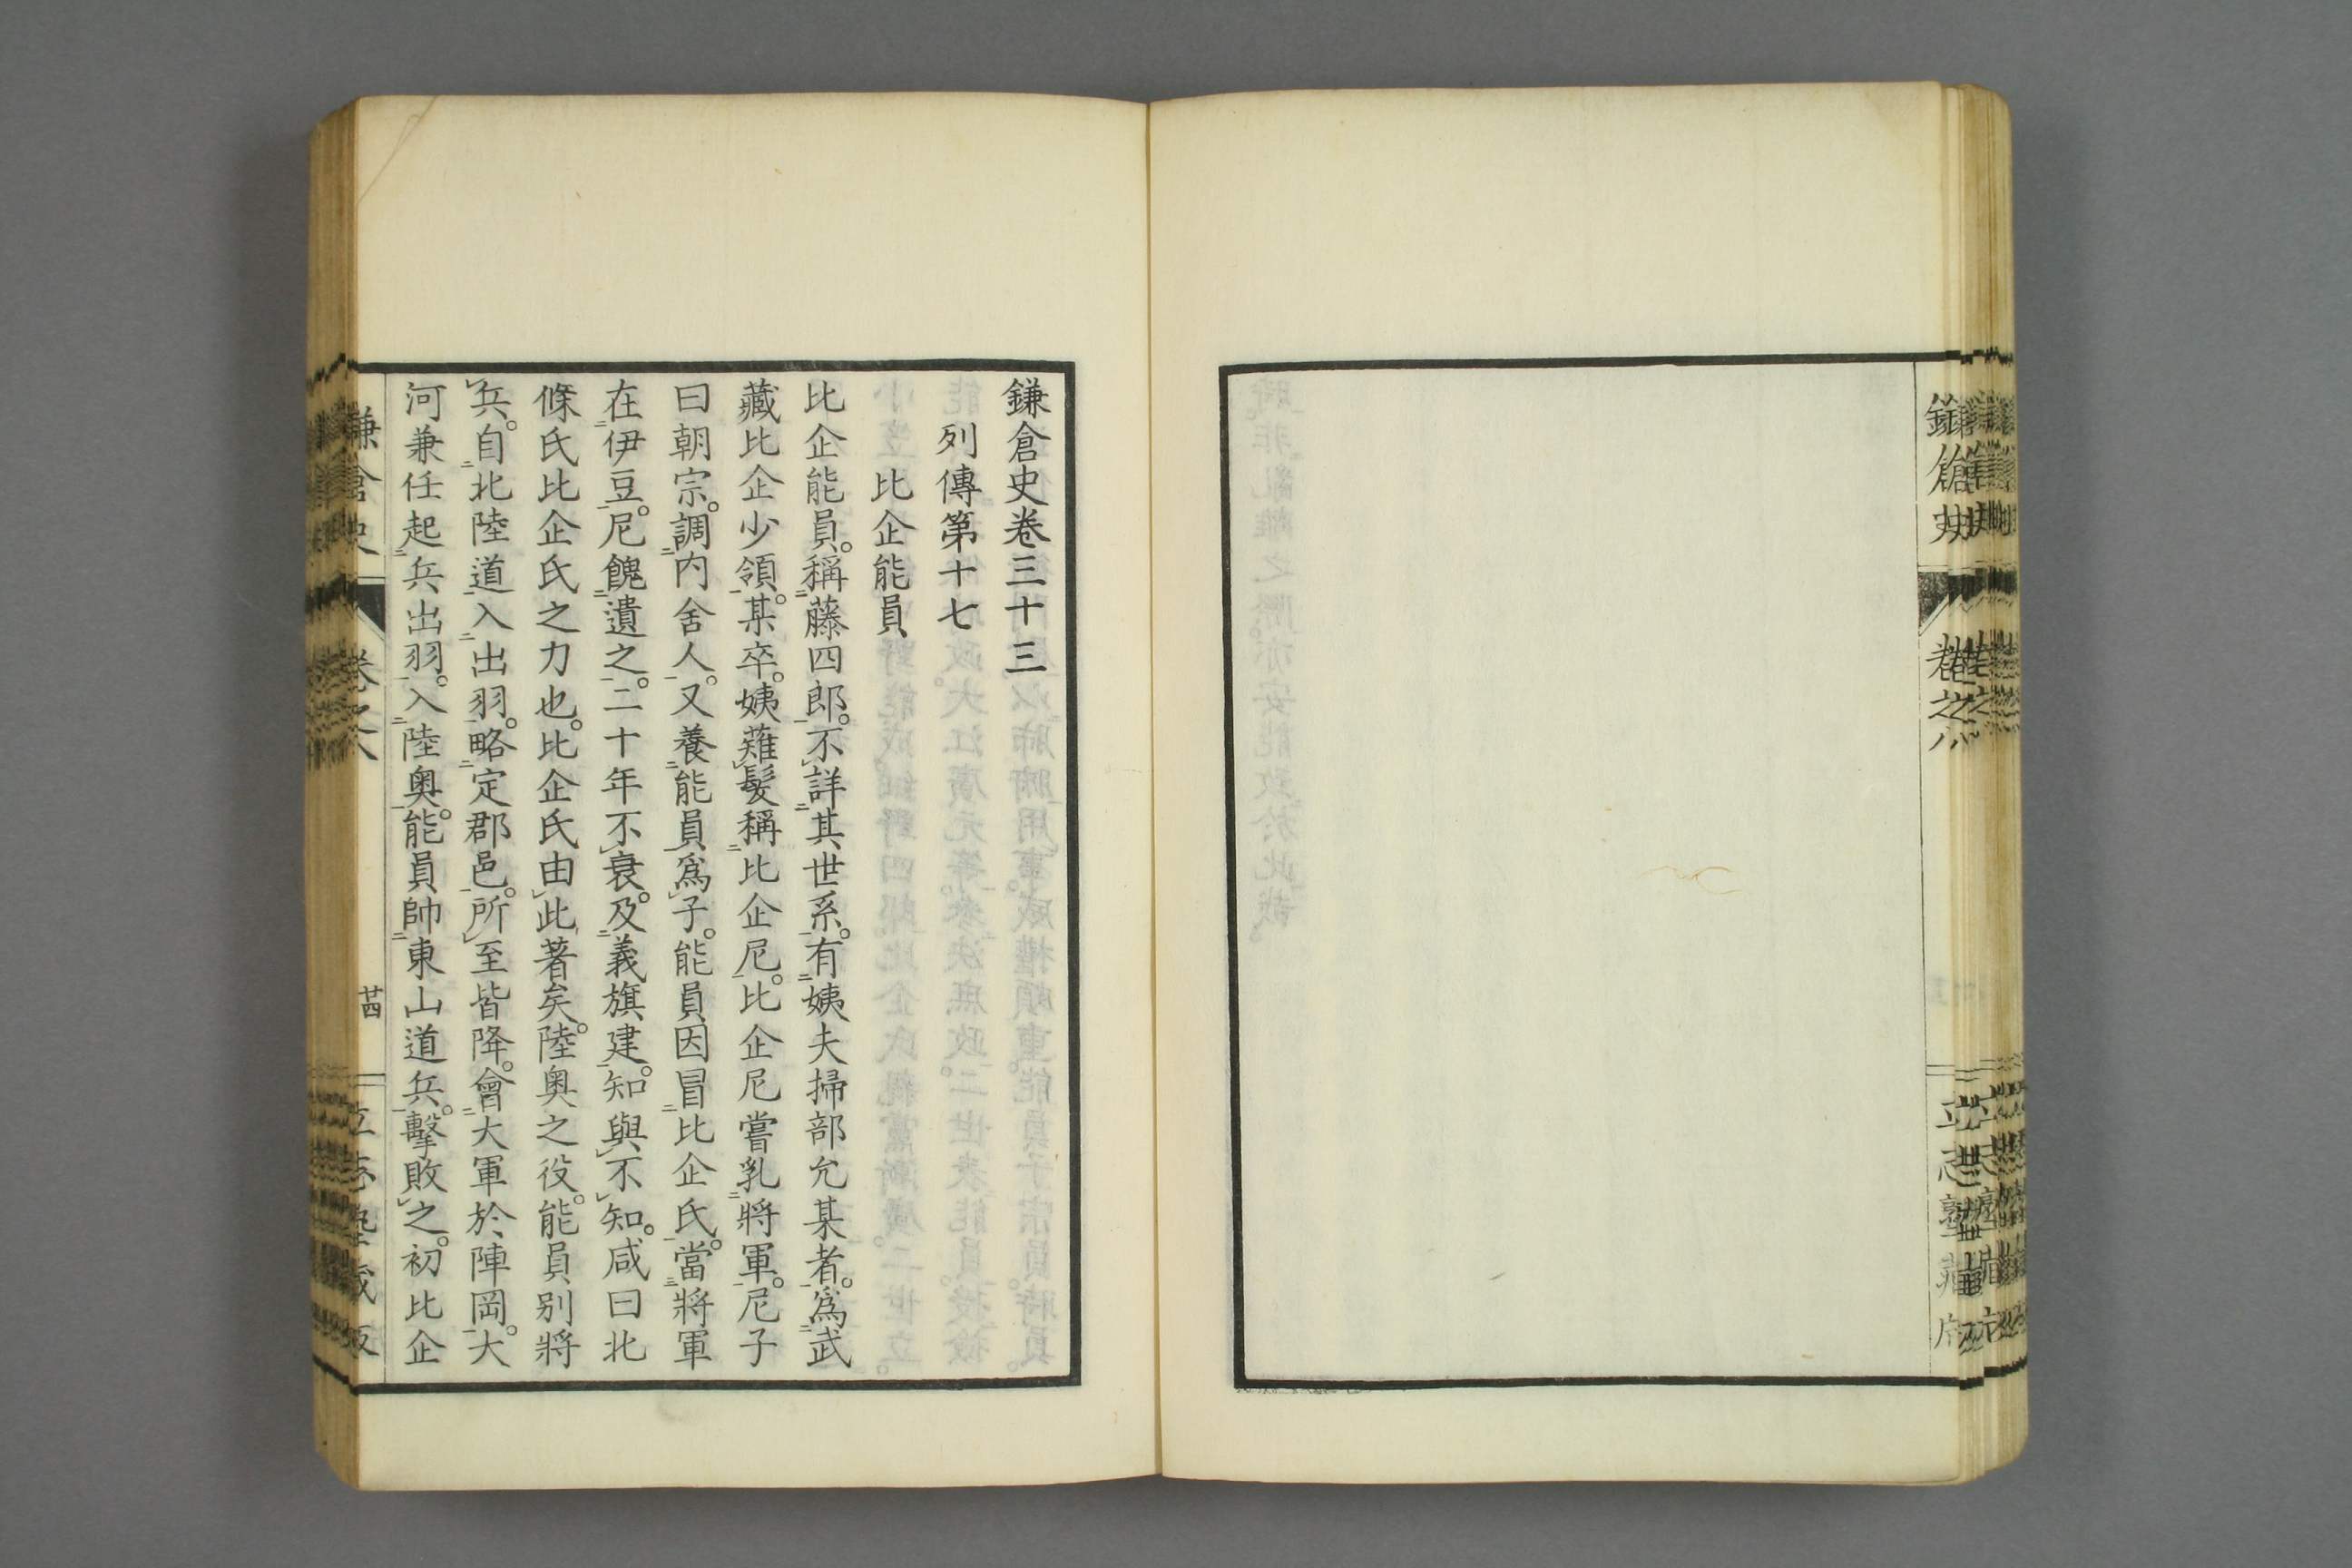 鎌倉史卷三十三
列傳第十七
比企能員
比企能員。稱藤四郎。不詳其世系。有姨夫掃部允某者。爲武
藏比企少領。某卒。姨薙髮稱比企尼。比企尼嘗乳將軍。尼子
曰朝宗。調內舍人。又養能員爲子。能員因冒比企氏。當將軍
在伊豆。尼餽遺之。二十年不衰。及義旗建。知與不知。咸曰北
條氏比企氏之力也。比企氏由此著矣。陸奥之役。能員別將
兵。自北陸道入出羽。略定郡邑。所至皆降。會大軍於陣岡。大
河兼任起兵出羽。入陸奥。能員帥東山道兵。擊敗之。初比企
鎌倉史
卷之八
廿四